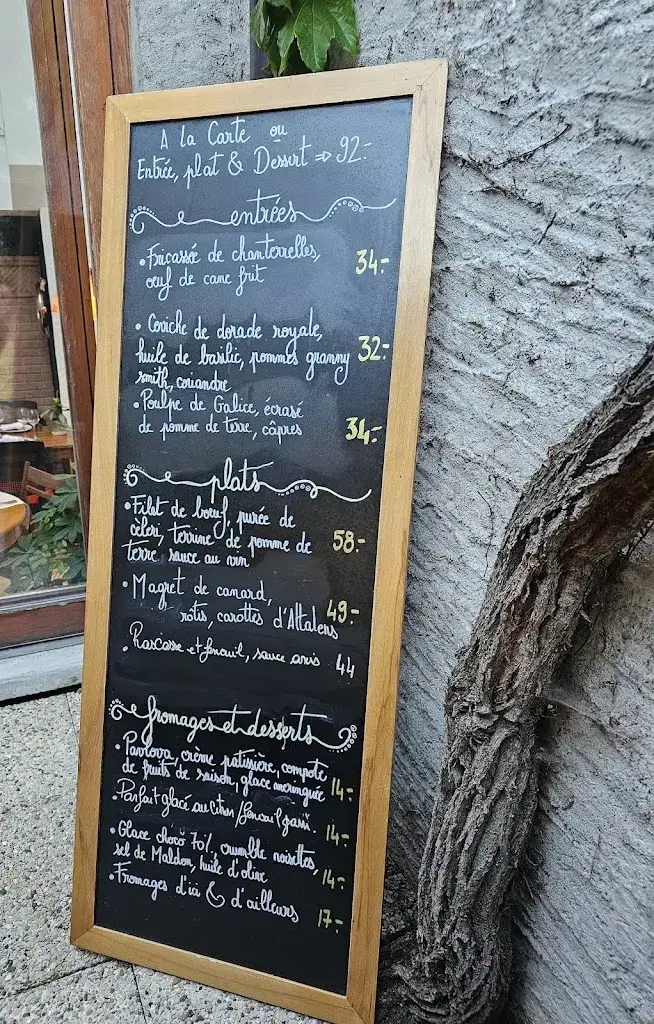 A la Carte ou
Entrée, plat & Dessert => 92.-
entrées
• Fricassée de chanterelles,
oeuf de cane frit 34.-
• Ceviche de dorade royale,
huile de basilic, pommes granny 32.-
smith, coriandre
• Poulpe de Galice, écrasé
de pomme de terre, câpres 34.-
plats
• Filet de bœuf, purée de
cèleri, terrine de pomme de 58.-
terre, sauce au vin
• Magret de canard, 49.-
rôtis, carottes d'Altalens
• Rascasse et fenouil, sauce anis 44
fromages et desserts
• Pavlova, crème patissière, compote
de fruits de saison, glace meringuée 14.-
• Parfait glacé au citron/fenouil 14.-
• Glace choco 70%, crumble noisettes,
sel de Maldon, huile d'olive 14.-
• Fromages d'ici & d'ailleurs 17.-